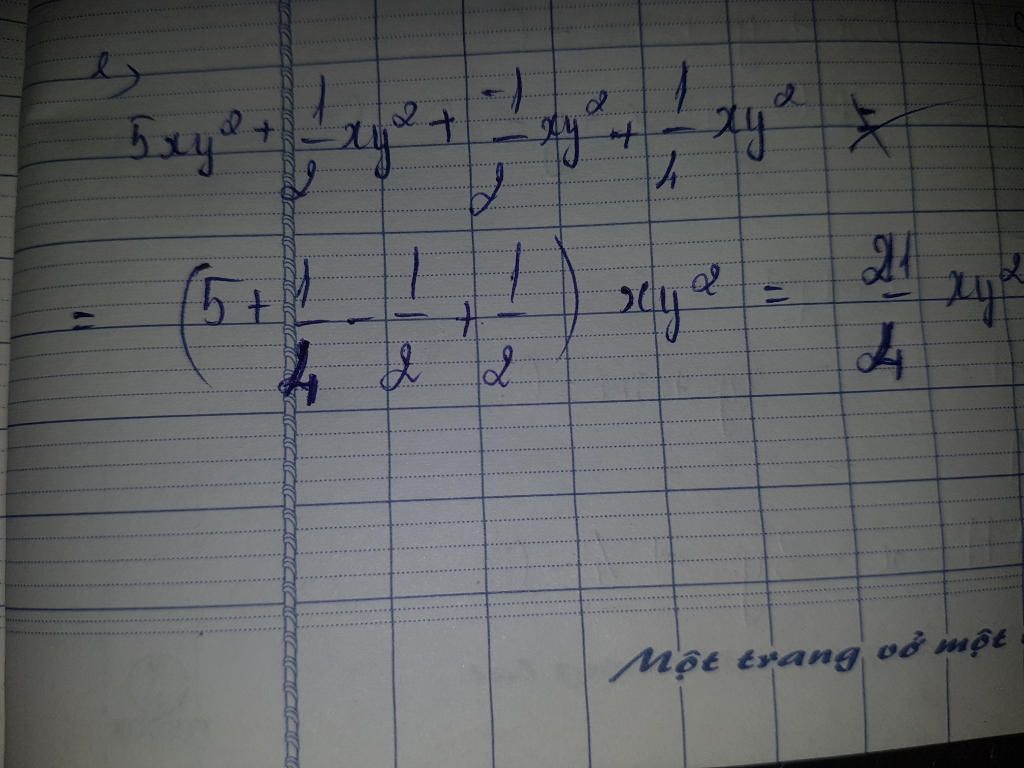 e)
5xy² + 1/2 xy² + -1/2 xy² + 1/4 xy²
= (5 + 1/4 - 1/2 + 1/2) xy² = 21/4 xy²
Một trang vở một